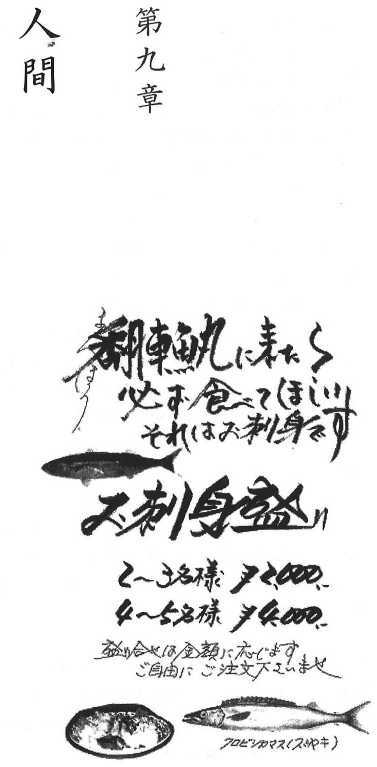 第九章
人間
まんぼう
翻車魚丸に来たら
必ず食べてほしい
それはお刺身です
お刺身盛り
2〜3名様 ¥2,000.-
4〜5名様 ¥4,000.-
盛り合せは金額に応じます
ご自由にご注文下さいませ
クロビシカマス(スミヤキ)